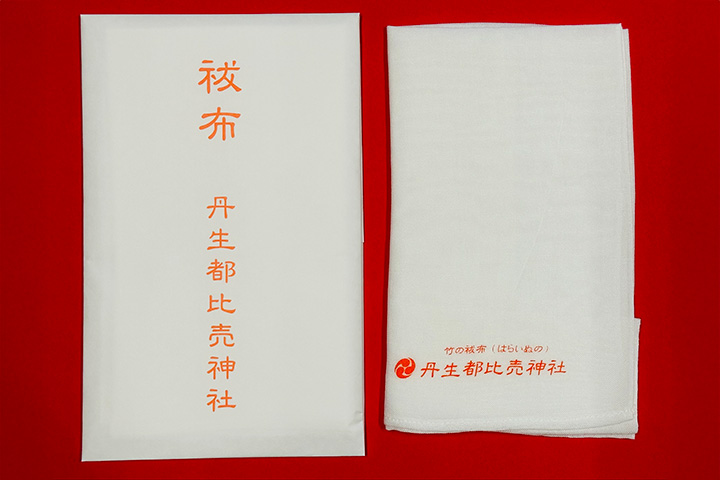 祓布
丹生都比売神社
竹の祓布(はらいぬの)
丹生都比売神社